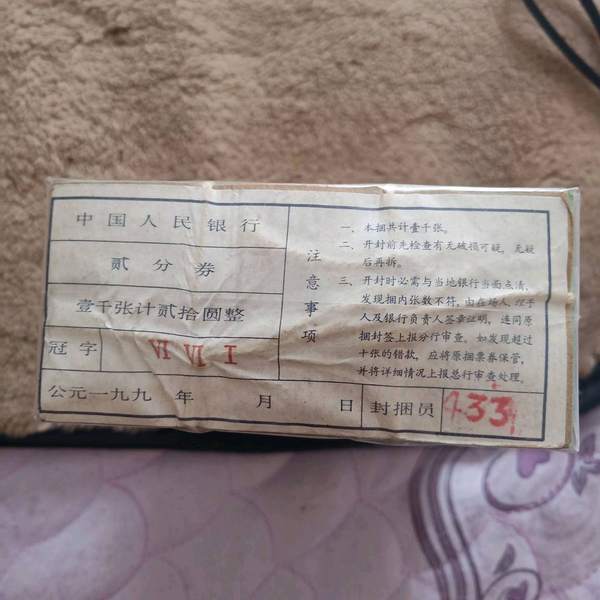 中国人民银行
贰分券
壹千张计贰拾圆整
冠字 VI VI I
公元一九九 年 月 日 封捆员 433
注意事项
一、本捆共计壹千张。
二、开封前先检查有无破损可疑，无疑
后再拆。
三、开封时必需与当地银行当面点清，
发现捆内张数不符，由在场人，经手
人及银行负责人签章证明，连同原
捆封签上报分行审查。如发现超过
十张的错款，应将原捆票券保管，
并将详细情况上报总行审查处理。